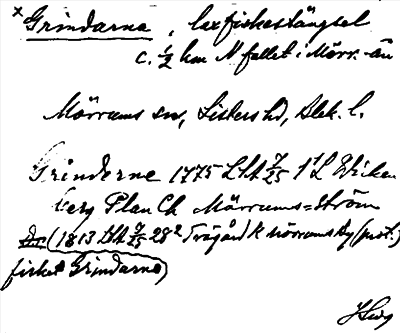 × Grindarne, laxfiskestängsel
c. ½ km N fallet i Mörr.-ån
Mörrums sn, Listers hd, Blek. l.
Grinderne 1775 Lht 7/25 1¹ L Wicken
berg Plan Ch Mörrums=Ström
(1813 Lht 7/25 28² Trägård k Mörrums by (prot.)
fisket Grindarne)